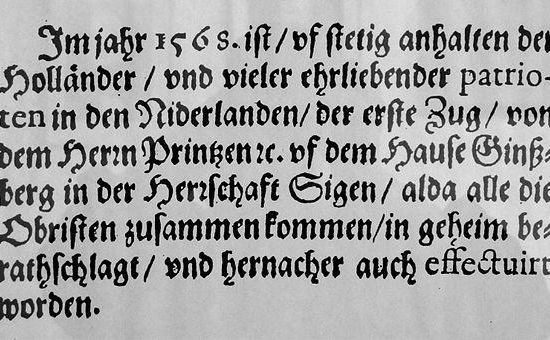 Im jahr 1568. ist / vf stetig anhalten der
Holländer / vnd vieler ehrliebender patrio-
ten in den Niderlanden / der erste Zug / von
dem Herrn Printzen ꝛc. vf dem Hause Ginß-
berg in der Herrschaft Sigen / alda alle die
Obristen zusammen kommen / in geheim be-
rathschlagt / vnd hernacher auch effectuirt
worden.